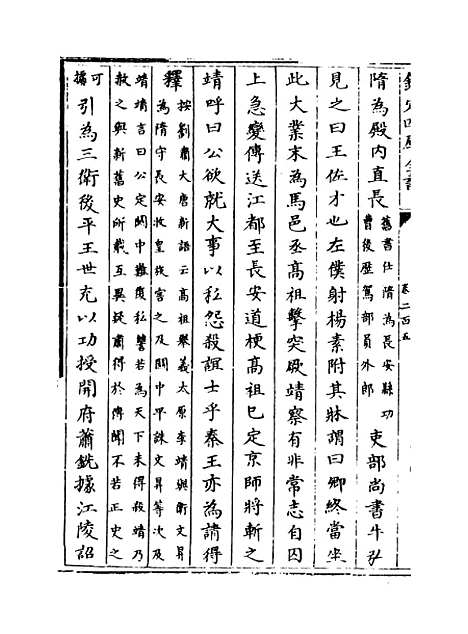 欽定四庫全書
卷二百五
隋為殿內直長
舊書仕隋為長安縣功
曹後歷駕部員外郎
吏部尚書牛弘
見之曰王佐才也左僕射楊素附其牀謂曰卿終當坐
此大業末為馬邑丞高祖擊突厥靖察有非常志自囚
上急變傳送江都至長安道梗高祖已定京師將斬之
靖呼曰公欲就大事以私怨殺誼士乎秦王亦為請得
釋
按劉肅大唐新語云高祖舉義太原李靖與衛文昇
為隋守長安收皇族害之及關中平誅文昇等次及
靖靖言曰公定關中難復私讐若為天下未得殺靖乃
赦之與新舊史所載互異疑肅得於傳聞不若正史之
可
據
引為三衛後平王世充以功授開府蕭銑據江陵詔